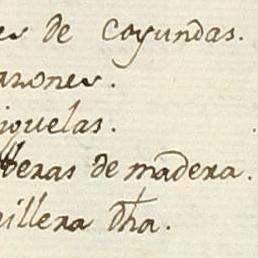 es de coyundas.
azones.
iquelas.
beras de madera.
illera Dha.